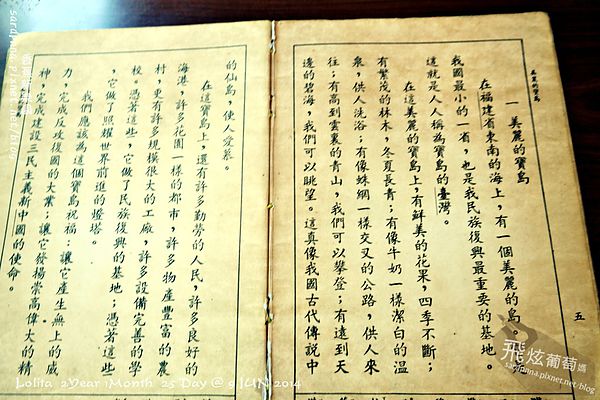 美麗的寶島
五
一 美麗的寶島
在福建省東南的海上,有一個美麗的島。
我國最小的一省,也是我民族復興最重要的基地。
這就是人人稱為寶島的臺灣。
在這美麗的寶島上,有鮮美的花果,四季不斷;
有繁茂的林木,冬夏長青;有像牛奶一樣潔白的溫
泉,供人洗浴;有像蛛網一樣交叉的公路,供人來
往;有高到雲裏的青山,我們可以攀登;有遠到天
邊的碧海,我們可以眺望。這真像我國古代傳說中
的仙島,使人愛慕。
在這寶島上,還有許多勤勞的人民,許多良好的
海港,許多花園一樣的都市,許多物產豐富的農
村,更有許多規模很大的工廠,許多設備完善的學
校。憑著這些,它做了民族復興的基地;憑著這些
,它做了照耀世界前進的燈塔。
我們應該為這個寶島祝福:讓它產生無上的威
力,完成反攻復國的大業;讓它發揚崇高偉大的精
神,完成建設三民主義新中國的使命。
飛炫葡萄媽
Lolita 2Year 1Month 25 Day @ 9 JUN 2014